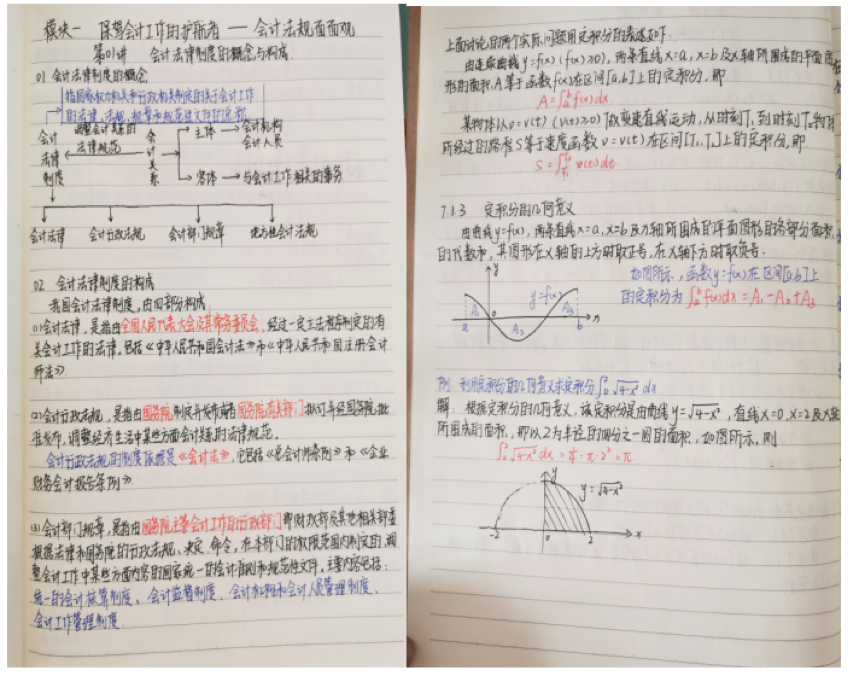 模块一 保驾会计工作的护航者 —— 会计法规面面观
第01讲 会计法律制度的概念与构成
01 会计法律制度的概念
指国家权力机关和行政机关制定的关于会计工作
的法律、法规、规章和规范性文件的总称
会计法律制度
调整会计关系的法律规范
会计关系
主体 → 会计机构 会计人员
客体 → 与会计工作相关的事务
会计法律 会计行政法规 会计部门规章 地方性会计法规
02 会计法律制度的构成
我国会计法律制度,由四部分构成
(1)会计法律,是指由全国人民代表大会及其常务委员会,经过一定立法程序制定的有
关会计工作的法律。包括《中华人民共和国会计法》和《中华人民共和国注册会计
师法》.
(2)会计行政法规,是指由国务院制定并发布或者国务院有关部门拟订并经国务院批
准发布,调整经济生活中某些方面会计关系的法律规范。
会计行政法规的制度依据是《会计法》,它包括《总会计师条例》和《企业
财务会计报告条例》.
(3)会计部门规章,是指由国务院主管会计工作的行政部门即财政部及其他相关部委
根据法律和国务院的行政法规、决定、命令,在本部门的权限范围内制定的、调
整会计工作中某些方面内容的国家统一的会计准则和规范性文件,主要内容包括:
统一的会计核算制度、会计监督制度、会计机构和会计人员管理制度、
会计工作管理制度.
上面讨论的两个实际问题用定积分的表述如下:
由连续曲线y=f(x)(f(x)≥0),两条直线x=a,x=b及x轴所围成的平面图
形的面积A等于函数f(x)在区间[a,b]上的定积分,即
A=∫ₐᵇf(x)dx.
某物体以v=v(t)(v(t)≥0)做变速直线运动,从时刻T₁到时刻T₂物体
所经过的路程S等于速度函数v=v(t)在区间[T₁,T₂]上的定积分,即
S=∫v(t)dt.
7.1.3 定积分的几何意义
由曲线y=f(x),两条直线x=a,x=b及x轴所围成的平面图形的各部分面积
的代数和,其图形在x轴的上方时取正号,在x轴下方时取负号.
如图所示,函数y=f(x)在区间[a,b]上
的定积分为∫ₐᵇf(x)dx=A₁-A₂+A₃
y
y=f(x)
A₁ A₃
a 0 b x
A₂
例 利用定积分的几何意义求定积分∫₀²√4-x² dx
解: 根据定积分的几何意义,该定积分是由曲线y=√4-x²,直线x=0,x=2及x轴
所围成的面积,即以2为半径的四分之一圆的面积,如图所示,则
∫₀²√4-x² dx=¼·π·2²=π.
y
y=√4-x²
-2 0 2 x